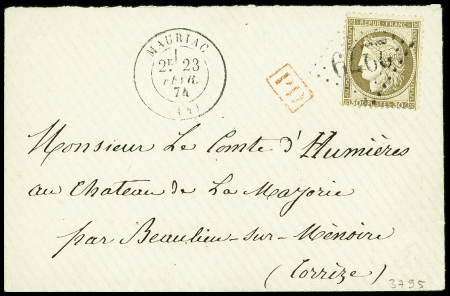 REPUB. FRANC.
2279
30 POSTES 30
MAURIAC
2E 23
FEVR.
74
(14)
PD
Monsieur Le Comte d'Humières
au Chateau de La Majorie
par Beaulieu-sur-Ménoire
(Corrèze)
3795